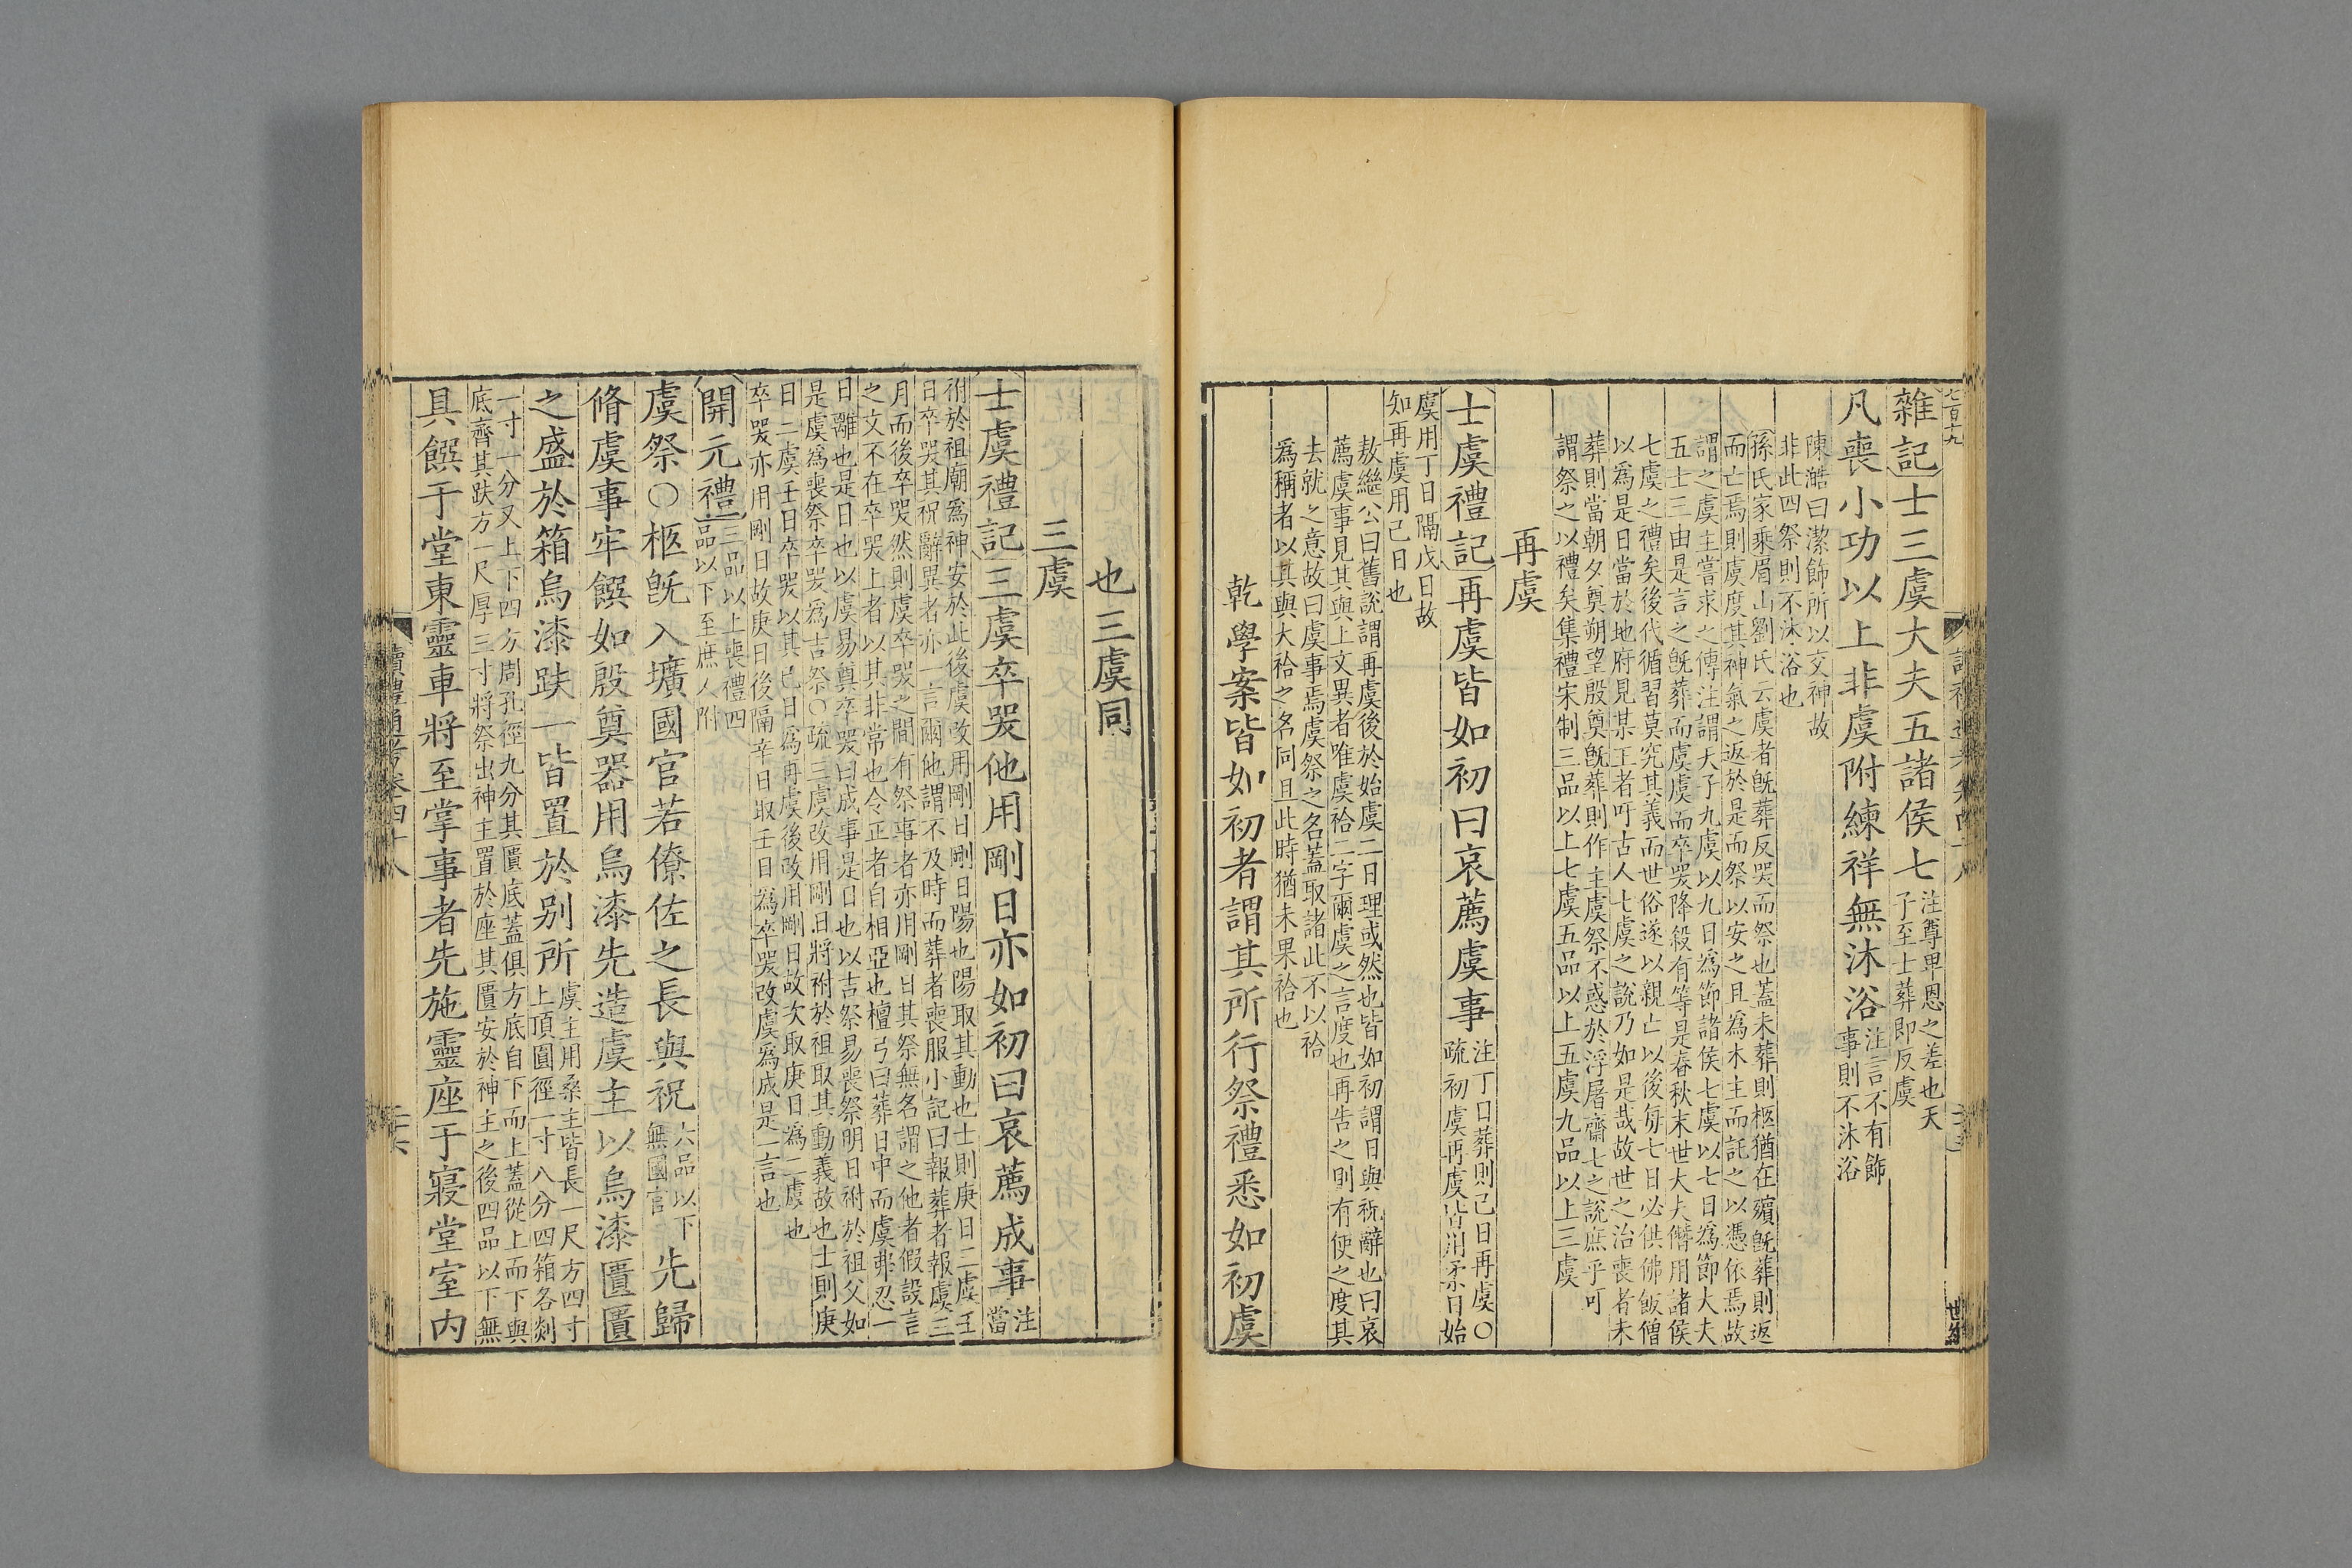 七百十九
雜記士三虞大夫五諸侯七注尊卑恩之差也天
子至士葬即反虞
凡喪小功以上非虞附練祥無沐浴注言不有飾
事則不沐浴
陳澔曰潔飾所以交神故
非此四祭則不沐浴也
孫氏家乘眉山劉氏云虞者旣葬反哭而祭也蓋未葬則柩猶在殯旣葬則返
而亡焉則虞度其神氣之返於是而祭以安之且為木主而託之以憑依焉故
謂之虞主嘗求之傳注謂天子九虞以九日為節諸侯七虞以七日為節大夫
五士三由是言之旣葬而虞虞而卒哭降殺有等是春秋末世大夫僭用諸侯
七虞之禮矣後代循習莫究其義而世俗遂以親亡以後每七日必供佛飯僧
以為是日當於地府見某王者吁古人七虞之說乃如是哉故世之治喪者未
葬則當朝夕奠朔望殷奠旣葬則作主虞祭不惑於浮屠齋七之說庶乎可
謂祭之以禮矣集禮宋制三品以上七虞五品以上五虞九品以上三虞
再虞
士虞禮記再虞皆如初曰哀薦虞事注丁日葬則己日再虞○
疏初虞再虞皆用柔日始
虞用丁日隔戊日故
知再虞用己日也
敖繼公曰舊說謂再虞後於始虞二日理或然也皆如初謂日與祝辭也曰哀
薦虞事見其與上文異者唯虞祫二字爾虞之言度也再告之則有使之度其
去就之意故曰虞事焉虞祭之名蓋取諸此不以祫
爲稱者以其與大祫之名同且此時猶未果祫也
乾學案皆如初者謂其所行祭禮悉如初虞
也三虞同
三虞
士虞禮記三虞卒哭他用剛日亦如初曰哀薦成事注
當
祔於祖廟爲神安於此後虞改用剛日剛日陽也陽取其動也士則庚日三虞壬
日卒哭其祝辭異者亦一言爾他謂不及時而葬者喪服小記曰報葬者報虞三
月而後卒哭然則虞卒哭之間有祭事者亦用剛日其祭無名謂之他者假設言
之文不在卒哭上者以其非常也令正者自相亞也檀弓曰葬日中而虞弗忍一
日離也是日也以虞易奠卒哭曰成事是日也以吉祭易喪祭明日祔於祖父如
是虞爲喪祭卒哭爲吉祭○疏三虞改用剛日將祔於祖取其動義故也士則庚
日二虞壬日卒哭以其己日爲再虞後改用剛日故次取庚日爲三虞也
卒哭亦用剛日故庚日後隔辛日取壬日爲卒哭改虞爲成是一言也
開元禮三品以上喪禮四
品以下至庶人附
虞祭○柩旣入壙國官若僚佐之長與祝六品以下
無國官先歸
脩虞事牢饌如殷奠器用烏漆先造虞主以烏漆匱匱
之盛於箱烏漆趺一皆置於别所虞主用桑主皆長一尺方四寸
上頂圓徑一寸八分四箱各剡
一寸一分又上下四方𠕋孔徑九分其匱底蓋俱方底自下而上蓋從上而下與
底齊其趺方一尺厚三寸將祭出神主置於座其匱安於神主之後四品以下無
具饌于堂東靈車將至掌事者先施靈座于寢堂室内
讀禮通考卷四十八
二十六